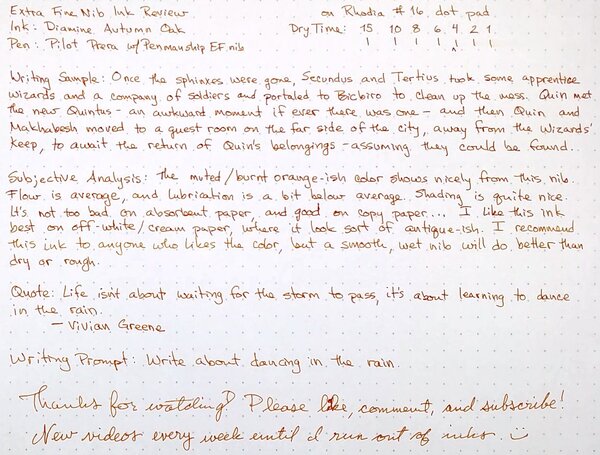 Extra Fine Nib Ink Review on Rhodia #16 dot pad
Ink: Diamine Autumn Oak Dry Time: 15 10 8 6 4 2 1
Pen: Pilot Prera w/Penmanship EF nib
Writing Sample: Once the sphinxes were gone, Secundus and Tertius took some apprentice
wizards and a company of soldiers and portaled to Bicbiro to clean up the mess. Quin met
the new Quintus - an awkward moment if ever there was one - and then Quin and
Makhabesh moved to a guest room on the far side of the city, away from the Wizards'
keep, to await the return of Quin's belongings - assuming they could be found...
Subjective Analysis: The muted/burnt orange-ish color shows nicely from this nib.
Flow is average, and lubrication is a bit below average. Shading is quite nice.
It's not too bad on absorbent paper, and good on copy paper... I like this ink
best on off-white/cream paper, where it look sort of antique-ish. I recommend
this ink to anyone who likes the color, but a smooth, wet nib will do better than
dry or rough.
Quote: Life isn't about waiting for the storm to pass, it's about learning to dance
in the rain.
- Vivian Greene
Writing Prompt: Write about dancing in the rain.
Thanks for watching! Please like, comment, and subscribe!
New videos every week until I run out of inks. :)